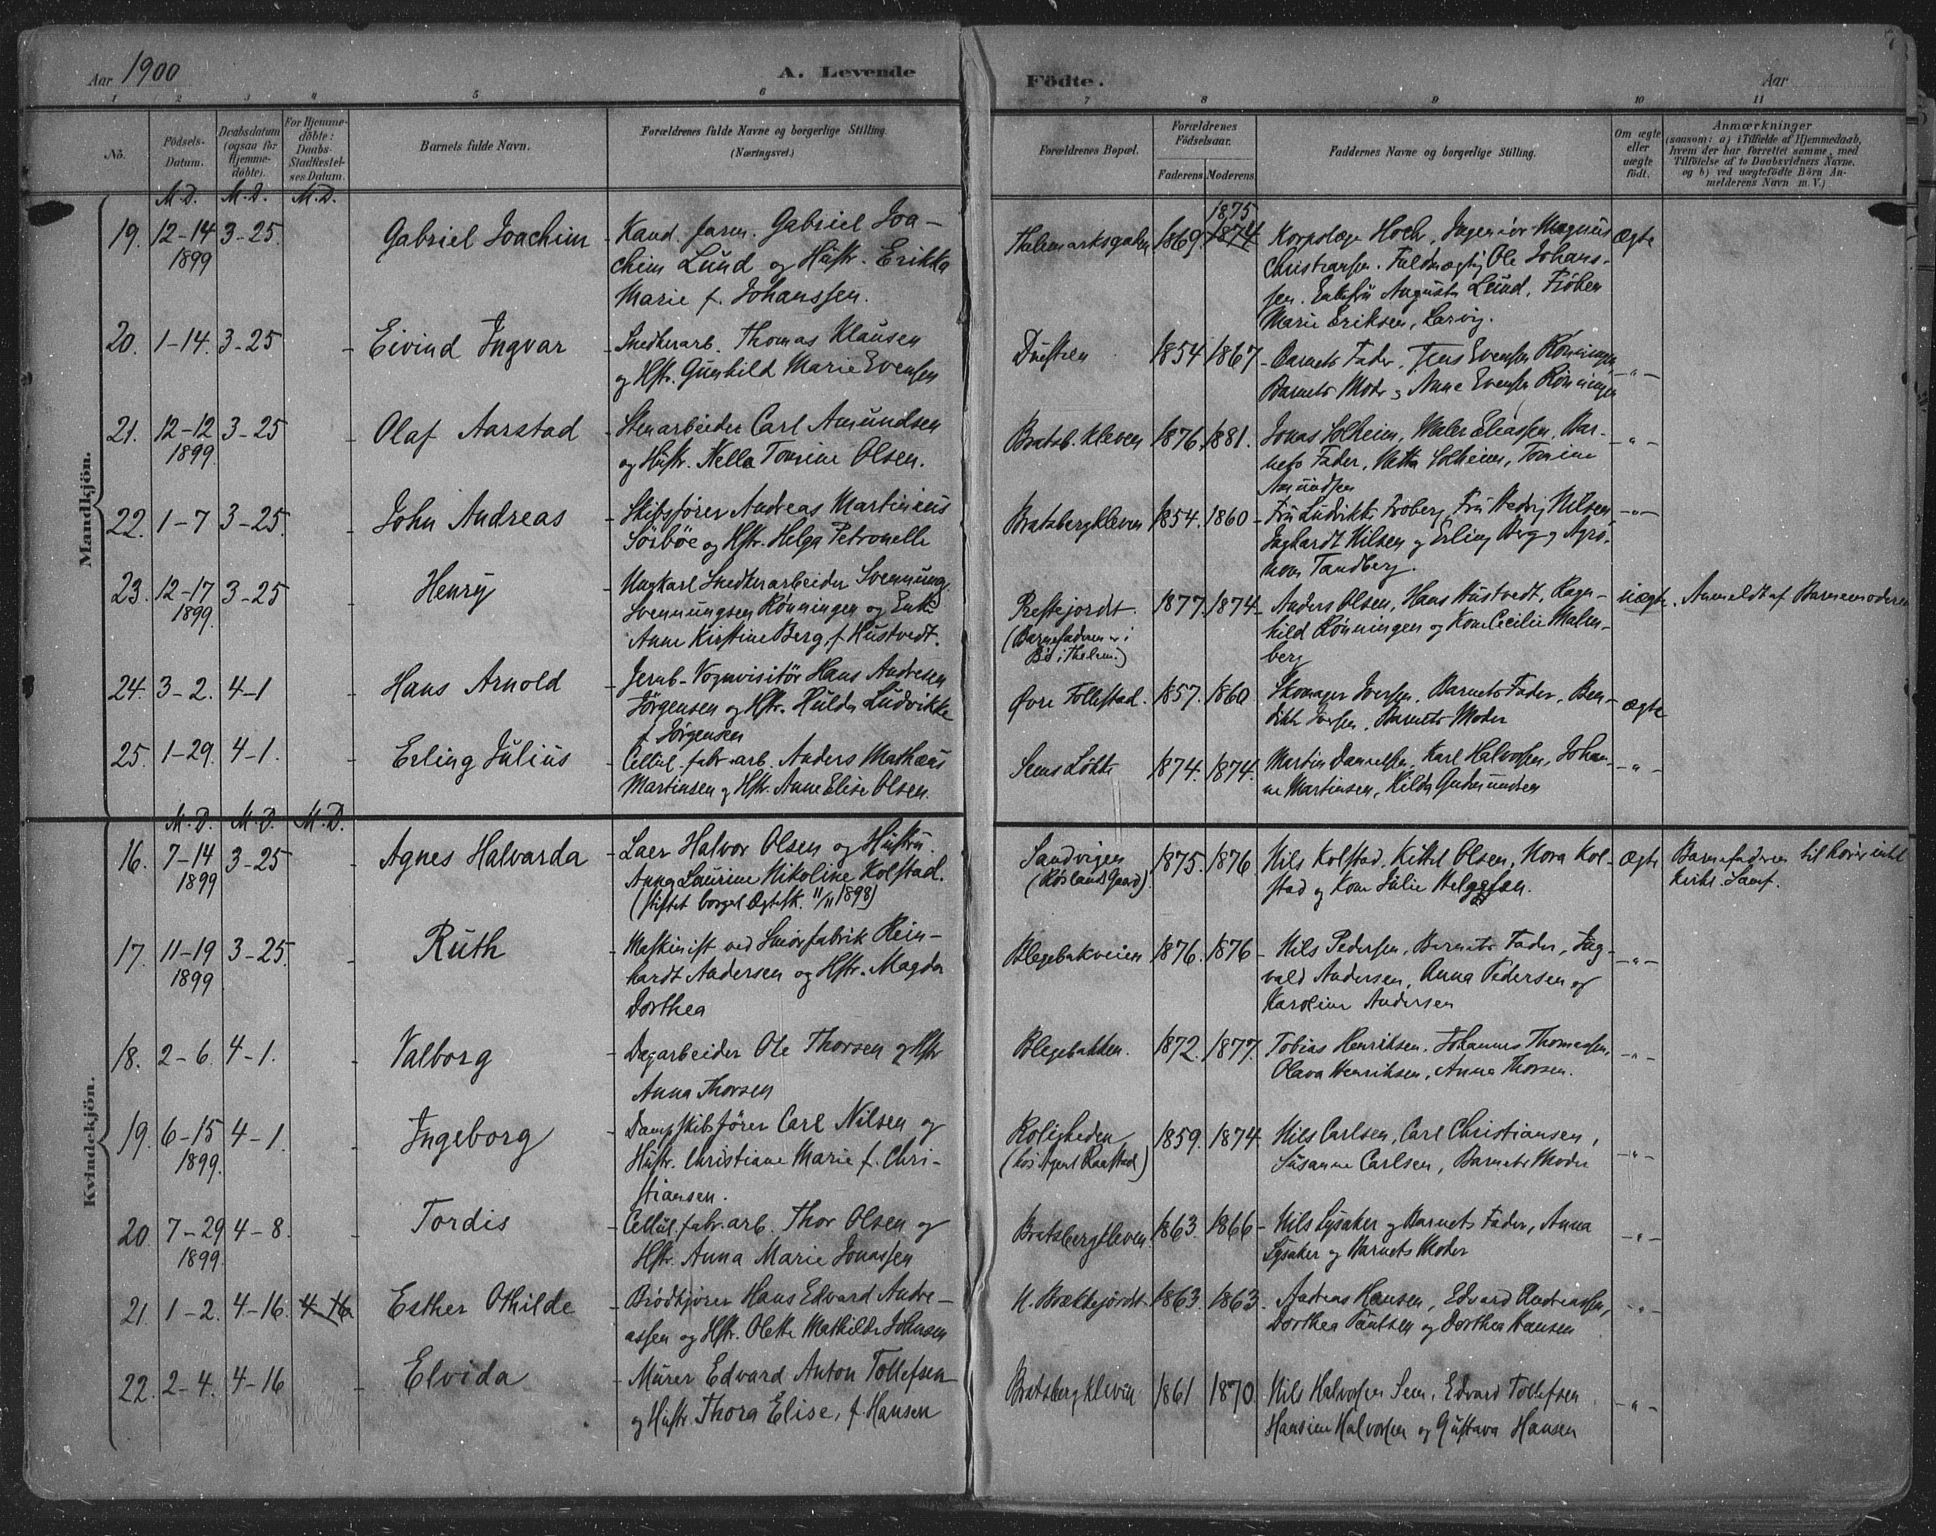 Aar 1900
A. Levende
1 2 3 4 5 6
No.
Födsels-
Datum.
Daabsdatum
(ogsaa for
Hjemme-
döbte).
For Hjemme-
döbte:
Daabs-
Stadfestel-
ses Datum.
Barnets fulde Navn.
Forældrenes fulde Navne og borgerlige Stilling.
(Næringsvei.)
M. D. M. D. M. D.
Mandkjön.
19. 12-14 1899 3-25. Gabriel Joachim
Kand. farm. Gabriel Joa-
chim Lund og Hustr. Erikka
Marie f. Johanssen.
20. 1-14. 3-25 - Eivind Ingvar
Snedkerarb. Thomas Klausen
og Hstr. Gunhild Marie Evensen
21. 12-12 1899 3-25 - Olaf Aarstad
Stenarbeider Carl Amundsen
og Hustr. Nella Tomine Olsen.
22. 1-7 3-25. - John Andreas
Skibsfører Andreas Martinius
og Hstr. Helga Petronelle
23. 12-17 1899. 3-25 - Henry
Ungkarl Snedkerarbeider Svennung
Svennungsen Rønningen og Enke
Anne Kirstine Berg f. Hustvedt.
24. 3-2. 4-1 - Hans Arnold
Jernb. Vognvisitør Hans Andresen
Jørgensen og Hstr. Hulda Ludvikke
f. Jørgensen
25. 1-29. 4-1. - Erling Julius
Cellul. fabr. arb. Anders Mathæus
Martinsen og Hstr. Anne Elise Olsen.
M. D. M. D. M. D.
Kvindekjön.
16. 7-14 1899 3-25 - Agnes Halvarda
Laer Halvor Olsen og Hustru
Anna Laurine Nikoline Kolstad.
(stiftet borgel. Ægtesk. 11/11 1898)
17. 11-19 1899 3-25. - Ruth
Maskinist ved Smørfabrik Rein-
hardt Andersen og Hstr. Magda
Dorthea
18. 2-6. 4-1. - Valborg
Dagarbeider Ole Thorsen og Hstr
Anna Thorsen
19. 6-15 1899. 4-1. - Ingeborg
Dampskibsfører Carl Nilsen og
Hustr. Christiane Marie f. Chri-
stiansen.
20 7-29 1899. 4-8. - Tordis
Cellul. fabr. arb. Thor Olsen og
Hstr. Anna Marie Jonassen
21. 1-2. 4-16. 4-16 Esther Othilde
Brødkjører Hans Edvard Andre-
assen og Hstr. Olette Mathilde Johnsen
22. 2-4. 4-16 - Elvida
Murer Edvard Anton Tollefsen
og Hustr. Thora Elise, f. Hansen
Födte.
Aar
7
7 8 9 10 11
Forældrenes Bopæl.
Forældrenes
Födselsaar.
Faderens. Moderens.
Faddernes Navne og borgerlige Stilling.
Om ægte
eller
uægte
födt.
Anmærkninger
(saasom: a) i Tilfælde af Hjemmedaab,
hvem der har forrettet samme, med
Tilföielse af to Daabsvidners Navne,
og b) ved uægtefödte Börn An-
melderens Navn m. V.)
Thelemarksgaden 1869. 1874 1875
Korpslæge Hoch, Ingeniør Magnus
Christiansen. Fuldmægtig Ole Johans-
sen. Enkefru Augusta Lund, Frøken
Marie Eriksen, Larvig.
Ægte
1854 1867.
Barnets Fader, Jens Evensen Rønningen
Barnets Moder og Anne Evensen Rønningen
-"-
Bratsb. kleven 1876. 1881.
Jonas Solheim, Maler Eliassen, Bar-
nets Fader, Netta Solheim, Tomine
Amundsen
-"-
Bratsbergkleven 1854. 1860
Fru Ludvikke Froberg, Fru Hedvig Nilsen,
Inghardt Nilsen og Erling Berg og Agro-
nom Tandberg.
-"-
Prestejordet. (Barnefaderen er i
Bø i Thelem.)
1877. 1874
Anders Olsen, Hans Hustvedt, Ragn-
hild Rønningen og Kone Cecilie Malm-
berg
uægte. Anmeldt af Barnemoderen
Øvre Follestad. 1857. 1860
Skomager Iversen, Barnets Fader, Ben-
dikte Iversen, Barnets Moder
ægte
Sems Løkke 1874. 1874.
Martin Danielsen, Karl Halvorsen, Johan-
ne Martinsen, Hilda Gudmundsen
-"-
Sandvigen
(Røslands Gaard).
1875. 1876
Nils Kolstad, Kittil Olsen, Nora Kol-
stad og Kone Julie Helgesen.
Ægte Barnefaderen til hører intet
kirkl. Samf.
Blegebakveien 1876. 1876
Nils Pedersen, Barnets Fader, Ing-
vald Andersen, Anna Pedersen og
Karoline Andersen
-"-
Blegebakken. 1872. 1877.
Tobias Henriksen. Johannes Thomassen,
Olava Henriksen, Anne Thorsen.
-"-
Roligheden
(hos Agent Raastad)
1859. 1874.
Nils Carlsen, Carl Christiansen,
Susanne Carlsen, Barnets Moder
-"-
Bratsbergkleven. 1863. 1866
Nils Lysaker og Barnets Fader, Anna
Lysaker og Barnets Moder
-"-
N. Brækkejordet 1863. 1863
Andreas Hansen, Edvard Andreassen,
Dorthea Paulsen og Dorthea Hansen
-"-
Bratsbergkleven 1861 1870.
Nils Halvorsen Sem, Edvard Tollefsen
Hansine Halvorsen og Gustava Hansen
-"-